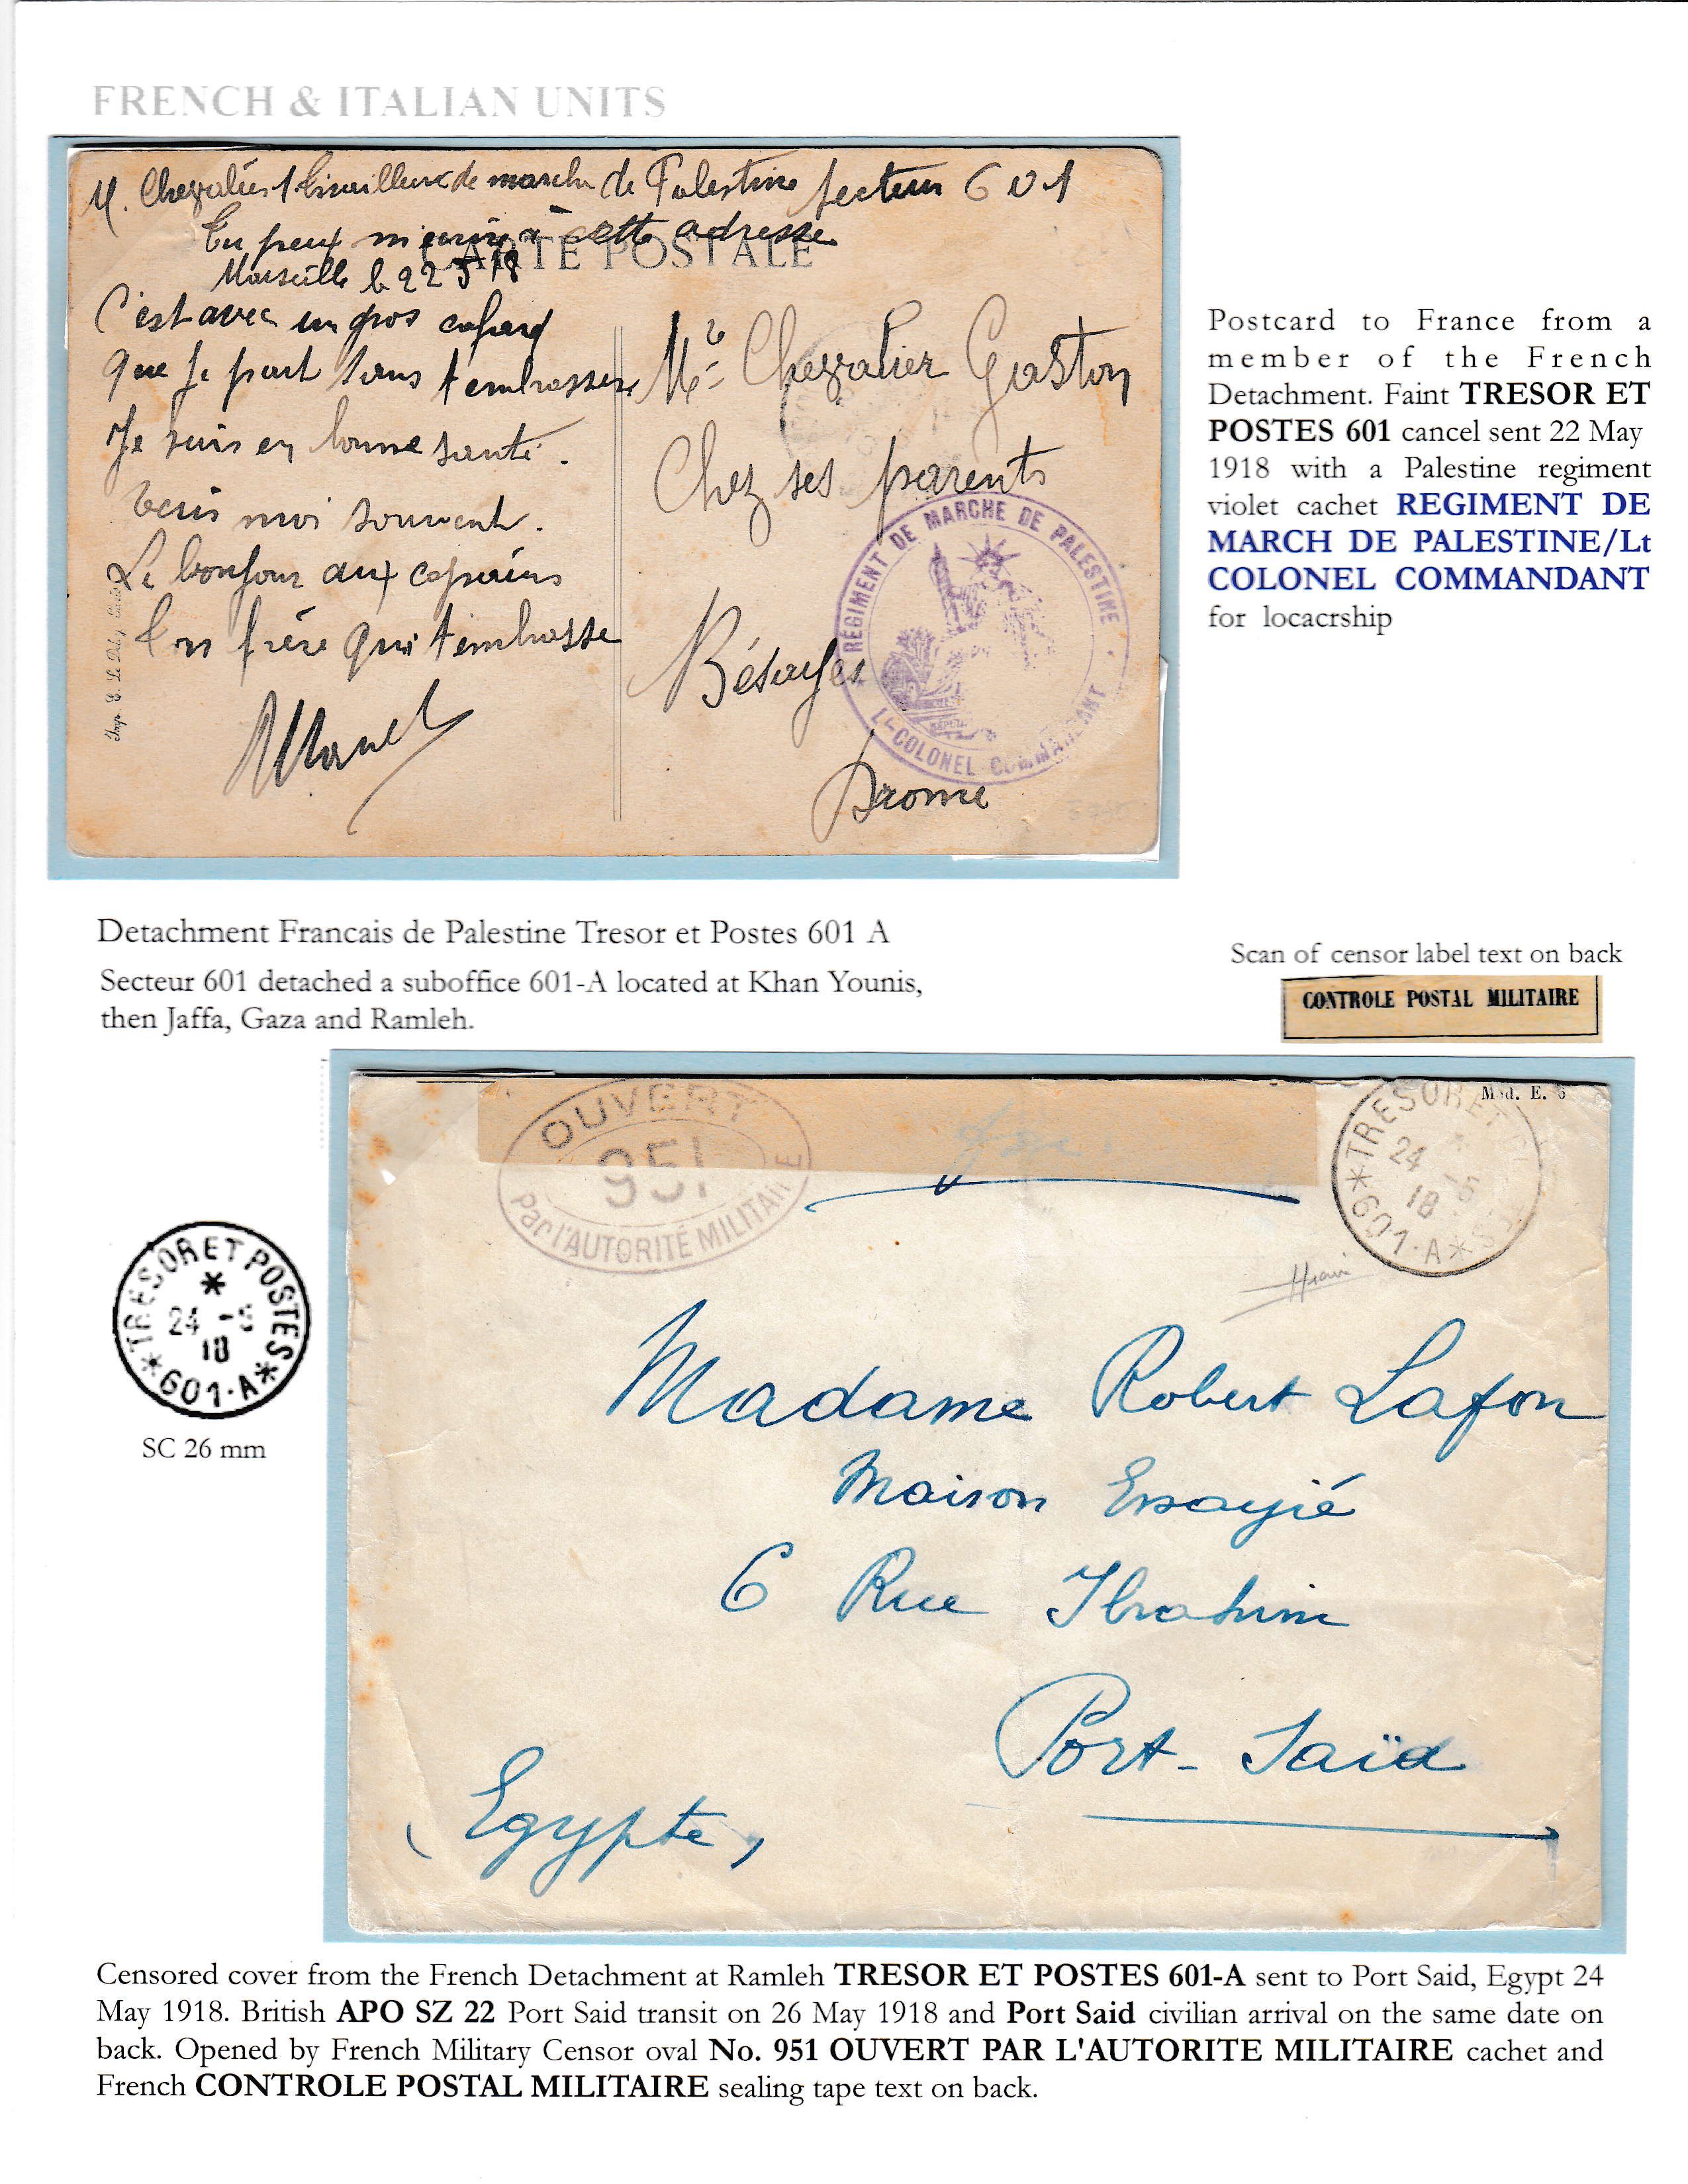 FRENCH & ITALIAN UNITS
M. Chevalier 1 tirailleurs de marche de Palestine secteur 601
Tu peux m'ecrire à cette adresse
CARTE POSTALE
Marseille le 22 5 18
C'est avec un gros cafard
que je part sans t'embrasser
Je suis en bonne santé.
Ecris moi souvent.
Le bonjour aux copains
Ton frère qui t'embrasse
Marcel
Mr Chevalier Gaston
Chez ses parents
Bésayes
Drome
REGIMENT DE MARCHE DE PALESTINE
Lt-COLONEL COMMANDANT
Postcard to France from a
member of the French
Detachment. Faint TRESOR ET
POSTES 601 cancel sent 22 May
1918 with a Palestine regiment
violet cachet REGIMENT DE
MARCH DE PALESTINE/Lt
COLONEL COMMANDANT
for locacrship
Detachment Francais de Palestine Tresor et Postes 601 A
Secteur 601 detached a suboffice 601-A located at Khan Younis,
then Jaffa, Gaza and Ramleh.
Scan of censor label text on back
CONTROLE POSTAL MILITAIRE
OUVERT
951
Par l'AUTORITÉ MILITAIRE
TRESOR ET POSTES
24 -5
18
601·A
TRESOR ET POSTES
24 -5
18
601·A
SC 26 mm
Madame Robert Lafon
Maison Essayié
6 Rue Ibrahim
Port-Saïd
Egypte
Censored cover from the French Detachment at Ramleh TRESOR ET POSTES 601-A sent to Port Said, Egypt 24
May 1918. British APO SZ 22 Port Said transit on 26 May 1918 and Port Said civilian arrival on the same date on
back. Opened by French Military Censor oval No. 951 OUVERT PAR L'AUTORITE MILITAIRE cachet and
French CONTROLE POSTAL MILITAIRE sealing tape text on back.